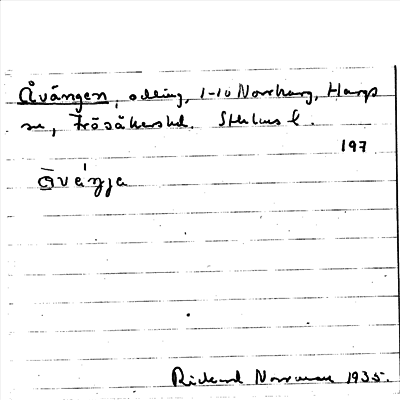 Åvängen, odling, 1-10 Norrhang, Hargs
sn, Frösåkers hd. Sthlms l.
197
Rickard Norrman 1935.